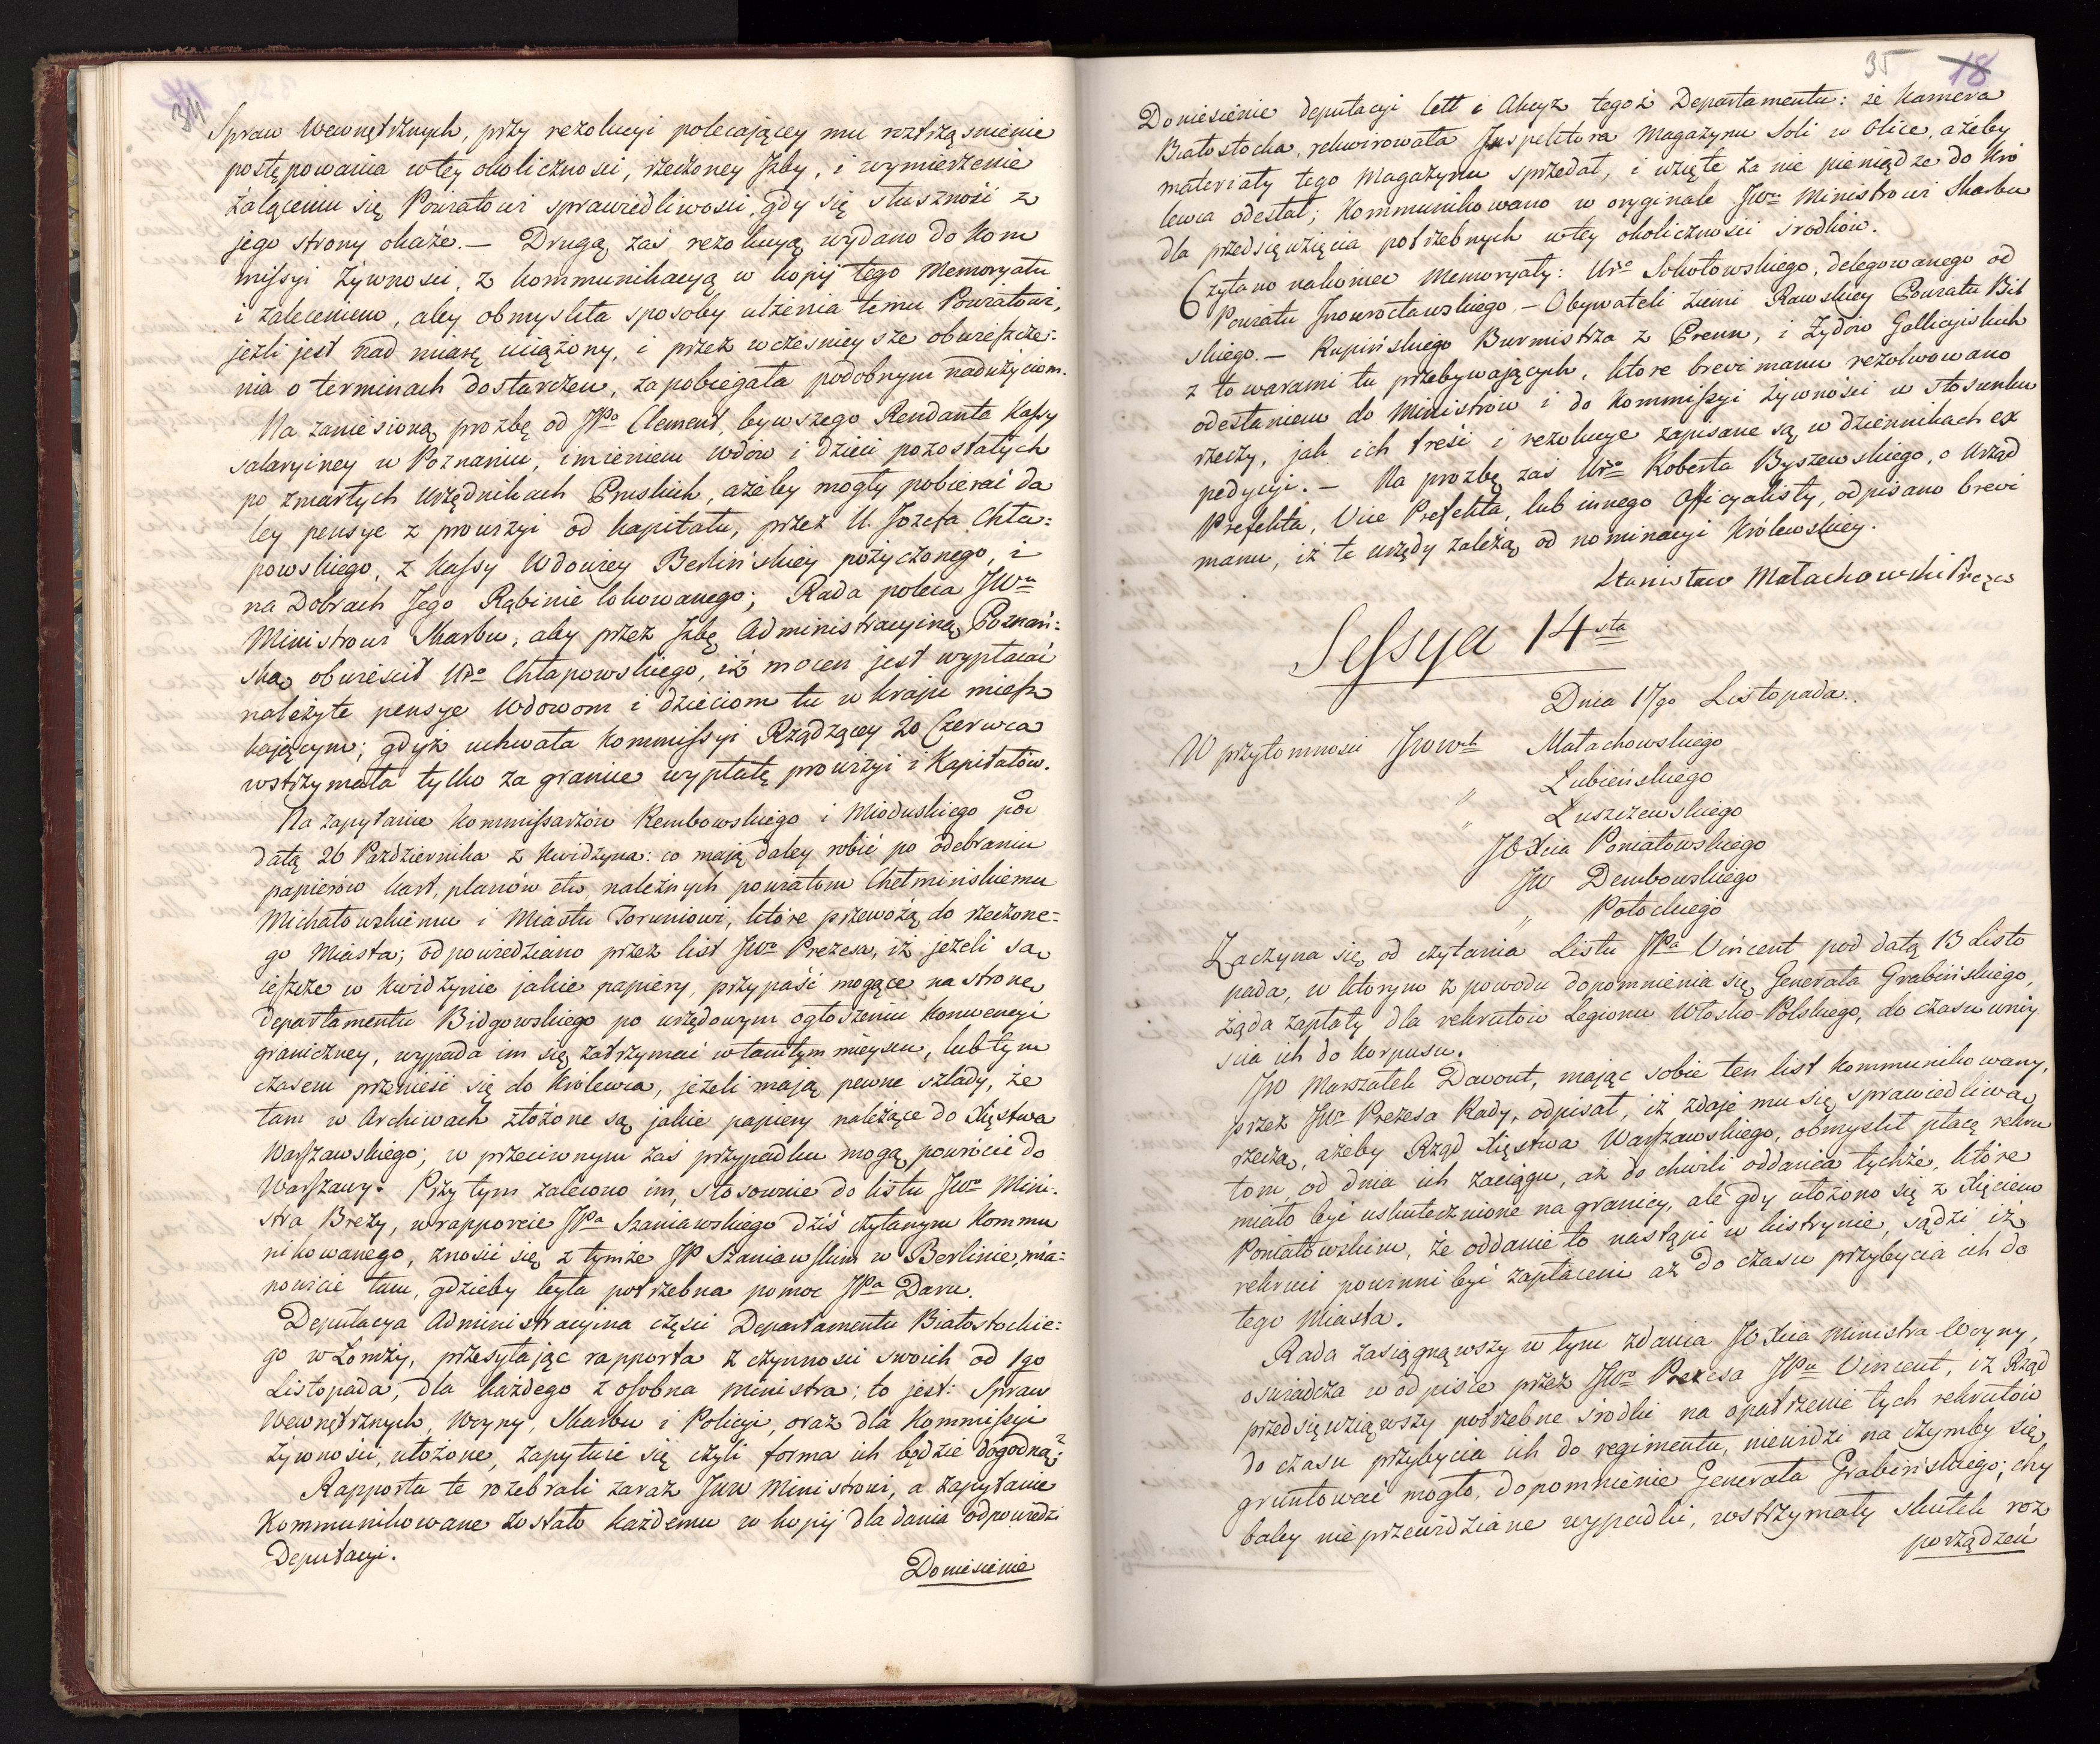 34
Spraw Wewnętrznych, przy rezolucyi polecającey mu roztrząśnienie
postępowania wtey okoliczności, rzeczoney Izby, i wymierzenie
żalącemu się Powiatowi sprawiedliwości, gdy się słuszność z
jego strony okaże. — Drugą zaś rezolucyą wydano do Kom
missyi Żywności, z kommunikacyą w kopij tego Memoryału
i zaleceniem, aby obmyśliła sposoby ulżenia temu Powiatowi,
jeżli jest nad miarę uciążony, i przez wcześnieysze obwieszcze=
nia o terminach dostarczeń, zapobiegała podobnym nadużyciom.
Na zaniesioną prozbę od JPa Clement, bywszego Rendanta Kassy
salaryiney w Poznaniu, imieniem wdów i dzieci pozostałych
po zmarłych urzędnikach Pruskich, ażeby mogły pobierać da
ley pensye z prowizyi od kapitału, przez U. Jozefa Chła=
powskiego, z Kassy Wdowiey Berlińskiey pożyczonego, i
na Dobrach Jego Rąbinie lokowanego; Rada poleca JWu
Ministrowi Skarbu, aby przez Izbę Administracyiną Poznań=
ską obwieścił Uro Chłapowskiego, iż mocen jest wypłacać
należyte pensye Wdowom i dzieciom tu w kraju miesz
kającym; gdyż uchwała Kommissyi Rządzącey 20 Czerwca
wstrzymała tylko za granice wypłatę prowizyi i Kapitałów.
Na zapytanie Kommissarzów Rembowskiego i Mioduskiego pod
datą 26 Października z Kwidzyna: co mają daley robić po odebraniu
papierów kart, planów etc należnych powiatom Chełmińskiemu
Michałowskiemu i Miastu Toruniowi, które przewożą do rzeczone=
go Miasta; odpowiedziano przez list JWo Prezesa, iż jeżeli są
ieszcze w Kwidzynie jakie papiery, przypaść mogące na stronę
Departamentu Bidgowskiego po urzędowym ogłoszeniu Konwencyi
graniczney, wypada im się zatrzymać wtamtym mieyscu, lub tym
czasem przenieść się do Królewca, jeżeli mają pewne szlady, że
tam w Archiwach złożone są jakie papiery należące do Xięstwa
Warszawskiego; w przeciwnym zaś przypadku mogą powrócić do
Warszawy. Przy tym zalecono im, stosownie do listu JWo Mini=
stra Brezy, w rapporcie JPa Szaniawskiego dziś czytanym Kommu
nikowanego, znosić się z tymże JP Szaniawskim w Berlinie, mia=
nowicie tam, gdzieby była potrzebna pomoc JPa Daru.
Deputacya Administracyina części Departamentu Białostockie=
go w Łomży, przesyłając rapporta z czynności swoich od 1go
Listopada, dla każdego z osobna ministra; to jest: Spraw
Wewnętrznych, Woyny, Skarbu i Policyi, oraz dla Kommissyi
Żywności, ułożone, zapytuie się czyli forma ich będzie dogodną?
Rapporta te rozebrali zaraz JWW Ministrowi, a zapytanie
Kommunikowane zostało każdemu w kopij dla dania odpowiedzi
Deputacyi.
Doniesienie
35 18
Doniesienie deputacyi Cell i Akcyz tegoż Departamentu: że Kamera
Białostocka, rekwirowała Inspektora Magazynu Soli w Olice, ażeby
materiały tego Magazynu sprzedał, i wzięte za nie pieniądze do Kró
lewca odesłał; Kommunikowano w oryginale JWu Ministrowi Skarbu
dla przedsięwzięcia potrzebnych wtey okoliczności srodków.
Czytano nakoniec Memoryały: Uro Sokołowskiego, delegowanego od
Powiatu Inowrocławskiego. — Obywateli Ziemi Rawskiey Powiatu Bił
skiego. — Rupińskiego Burmistrza z Prenn, i Żydów Gallicyiskich
z towarami tu przebywających, które brevi manu rezolwowano
odesłaniem do Ministrów i do Kommissyi Żywności w stosunku
rzeczy, jak ich treści i rezolucye zapisane są w dziennikach ex
pedycyi. — Na prozbę zaś Uro Roberta Byszewskiego, o Urząd
Prefekta, Vice Prefekta, lub innego Officyalisty, odpisano brevi
manu, iż te urzędy zależą od nominacyi Królewskiey.
Stanisław Małachowski Prezes
Sessya 14sta
Dnia 17go Listopada.
W przytomności JWWch Małachowskiego
" Łubieńskiego
" Łuszczewskiego
JO Xcia Poniatowskiego
JW Dembowskiego
" Potockiego
Zaczyna się od czytania Listu JPa Vincent pod datą 13 Listo
pada, w którym z powodu dopomnienia się Generała Grabińskiego,
żąda zapłaty dla rekrutów Legionu Włosko-Polskiego, do czasu wniy
ścia ich do Korpusu.
JW Marszałek Davout, mając sobie ten list kommunikowany,
przez JWo Prezesa Rady, odpisał, iż zdaje mu się sprawiedliwą
rzeczą, ażeby Rząd Xięstwa Warszawskiego, obmyślił płacę rekru
tom od dnia ich zaciągu, aż do chwili oddania tychże, które
miało byc uskutecznione na granicy, ale gdy ułożono się z Xięciem
Poniatowskim, że oddanie to nastąpi w Kistrynie, sądzi iż
rekruci powinni być zapłaceni aż do czasu przybycia ich do
tego Miasta.
Rada zasiągnąwszy w tym zdania JO Xcia Ministra Woyny,
oświadcza w odpisie przez JWo Prezesa JPu Vincent, iż Rząd
przedsięwziąwszy potrzebne środki na opatrzenie tych rekrutów
do czasu przybycia ich do regimentu, niewidzi na czymby się
gruntować mogło, dopomnienie Generała Grabińskiego; chy
baby nieprzewidziane wypadki, wstrzymały skutek roz
porządzeń